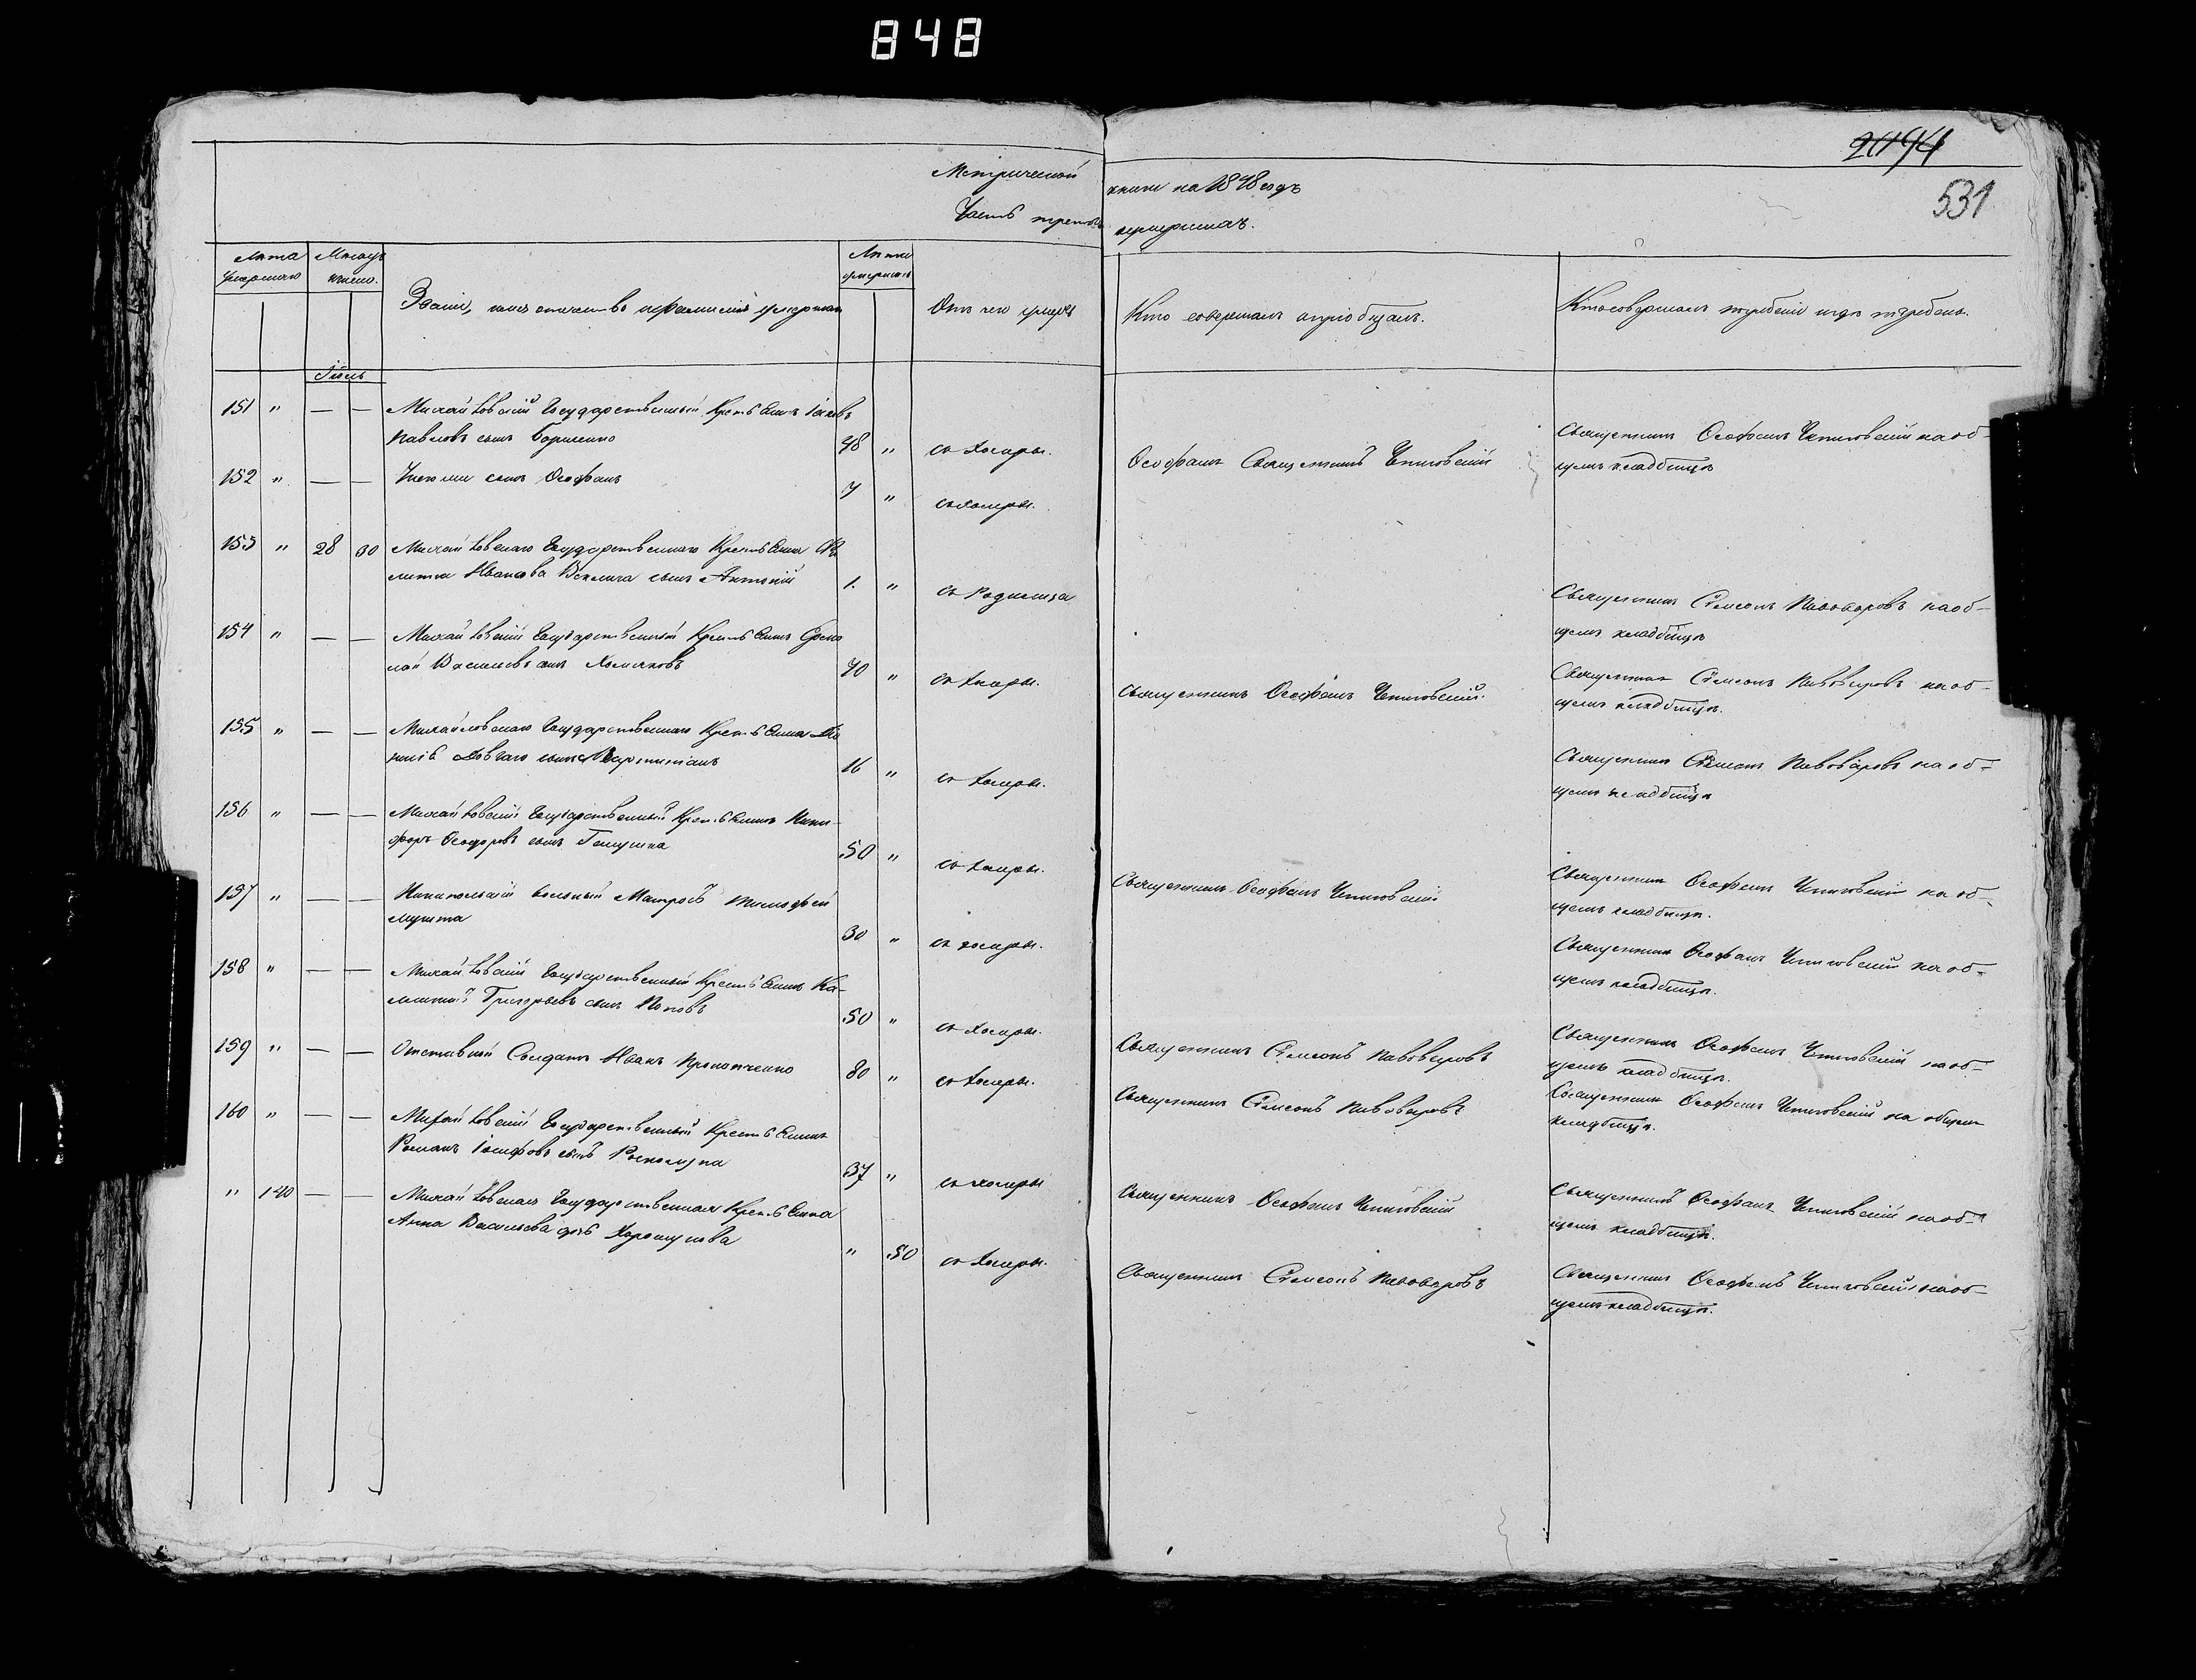 848
2094
531
Метрической книги на 1848 годъ
Часть третья умершихъ.
Лѣта умершихъ
Мѣсяцъ число.
Званіе, имя отечество и фамилія умершаго
Лѣта умершихъ
Отъ чего умеръ
Кто совершалъ и пріобщалъ.
Кто совершалъ погребеніе и гдѣ погребены.
Іюль
151 " — — Михайловскій Государственный Крестьянинъ Іаковъ
Павловъ сынъ 48 " съ холеры.
Ѳеофанъ Священникъ
Священникъ Ѳеофанъ на об-
щемъ кладбищѣ
152 " — — сынъ Ѳеофанъ 7 " съ холеры.
153 " 28 30 Михайловскаго Государственнаго Крестьянина
Иванова сынъ Антоній 1. " съ родимца
Священникъ Симеонъ Пивоваровъ на об-
щемъ кладбищѣ
154 " — — Михайловскій Государственный Крестьянинъ Ермо
лай Васильевъ сынъ Хомяковъ 70 " съ холеры.
Священникъ Ѳеофанъ
Священникъ Симеонъ Пивоваровъ на об-
щемъ кладбищѣ.
155 " — — Михайловскаго Государственнаго Крестьянина
Довгаго сынъ 16 " съ холеры.
Священникъ Симеонъ Пивоваровъ на об-
щемъ кладбищѣ
156 " — — Михайловскій Государственный Крестьянинъ Ники-
форъ Ѳеодоровъ сынъ 50 " съ холеры.
Священникъ Ѳеофанъ
Священникъ Ѳеофанъ на об-
щемъ кладбищѣ.
157 " — — Никопольскій вольный Матросъ Тимофей
30 " съ холеры.
Священникъ Ѳеофанъ на об-
щемъ кладбищѣ.
158 " — — Михайловскій Государственный Крестьянинъ Ка-
Григорьевъ сынъ Поповъ 50 " съ холеры.
Священникъ Симеонъ Пивоваровъ
Священникъ Ѳеофанъ на об-
щемъ кладбищѣ.
159 " — — Отставной Солдатъ Иванъ Прокопченко 80 " съ холеры.
Священникъ Симеонъ Пивоваровъ
Священникъ Ѳеофанъ на общемъ
кладбищѣ.
160 " — — Михайловскій Государственный Крестьянинъ
Романъ Іосифовъ сынъ 37 " съ холеры
Священникъ Ѳеофанъ
Священникъ Ѳеофанъ на об-
щемъ кладбищѣ.
" 140 — — Михайловская Государственная Крестьянка
Анна Васильева дочь " 50 съ холеры.
Священникъ Симеонъ Пивоваровъ
Священникъ Ѳеофанъ на об-
щемъ кладбищѣ.